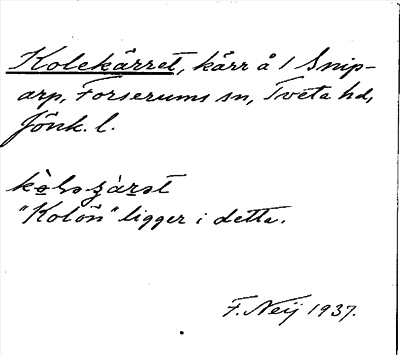 Kolekärret, kärr å 1 Snip-
arp, Forserums sn, Tveta hd,
Jönk. l.
"Kolön" ligger i detta.
F. Neij 1937.